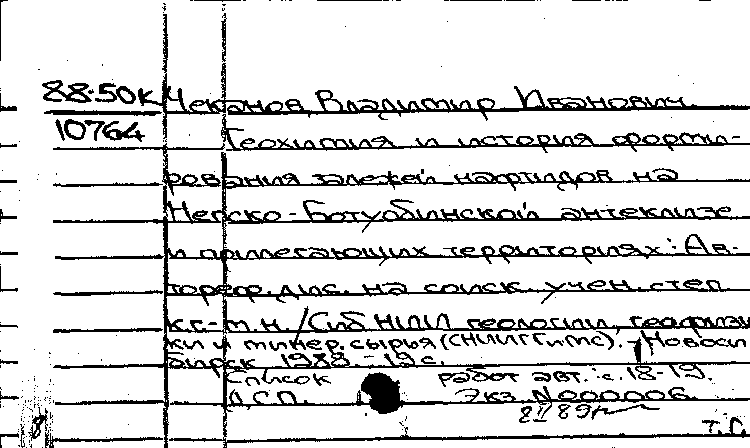 88:50К Чеканов, Владимир Иванович.
10764 Геохимия и история форми-
рования залежей нафтидов на
Непско-Ботуобинской антеклизе
и прилегающих территориях: Ав-
тореф. дис. на соиск. учен. степ.
к.г.-м.н./Сиб НИИ геологии, геофизи
ки и минер. сырья (СНИИГГиМС). - Новоси
бирск 1988. - 19 с.
Список работ авт.: с. 18-19.
Д.С.П. Экз. N000006.
8 II 89г
8 т.о.